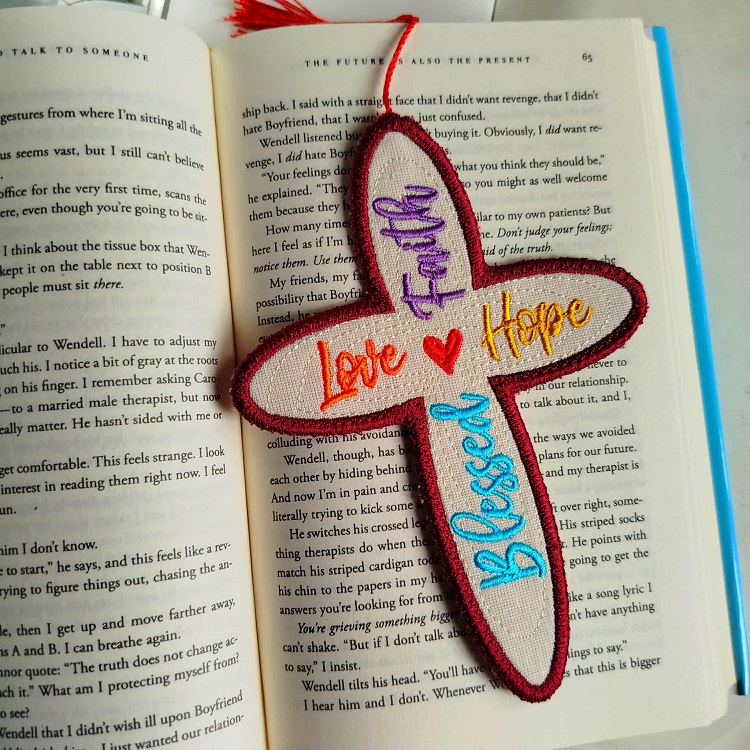 TALK TO SOMEONE
gestures from where I'm sitting all the
us seems vast, but I still can't believe
office for the very first time, scans the
ere, even though you're going to be sit-
I think about the tissue box that Wen-
kept it on the table next to position B
people must sit there.
licular to Wendell. I have to adjust my
uch his. I notice a bit of gray at the roots
on his finger. I remember asking Caro-
—to a married male therapist, but now
eally matter. He hasn't sided with me or
get comfortable. This feels strange. I look
interest in reading them right now. I feel
un.
him I don't know.
e to start," he says, and this feels like a rev-
rying to figure things out, chasing the an-
le, then I get up and move farther away,
ns A and B. I can breathe again.
nnor quote: "The truth does not change ac-
ch it." What am I protecting myself from?
o see?
Wendell that I didn't wish ill upon Boyfriend
I just wanted our relation-
THE FUTURE IS ALSO THE PRESENT 65
ship back. I said with a straight face that I didn't want revenge, that I didn't
hate Boyfriend, that I was just confused.
Wendell listened buying it. Obviously, I did want re-
venge, I did hate Boyf
"Your feelings do what you think they should be,"
he explained. "They so you might as well welcome
them because they h
How many time ilar to my own patients? But
here I feel as if I'm h me. Don't judge your feelings;
notice them. Use them aid of the truth.
My friends, my fa
possibility that Boyfri she
Instead, he
never to
in our relationship.
to talk about it, and I,
colluding with his avoidan
Wendell, though, has b the ways we avoided
each other by hiding behind plans for our future.
And now I'm in pain and cr and my therapist is
literally trying to kick some
He switches his crossed leg t over right, some-
thing therapists do when the His striped socks
match his striped cardigan tod He points with
his chin to the papers in my ha going to get the
answers you're looking for from
You're grieving something bigger like a song lyric I
can't shake. "But if I don't talk abo n't have anything
to say," I insist.
Wendell tilts his head. "You'll have things to say."
I hear him and I don't. Whenever W es that this is bigger
Faith
Love Hope
Blessed